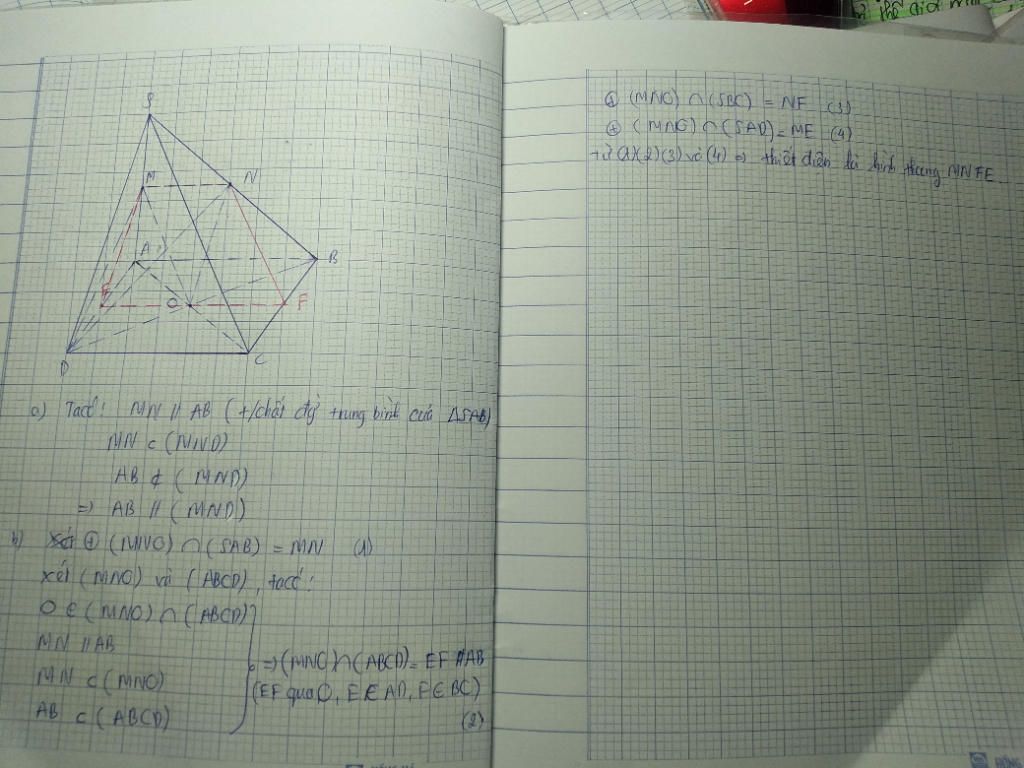 S
M
N
A
B
E
O
F
D
C
a) Ta có: MN // AB (t/chất đg trung bình của ΔSAB)
MN ⊂ (MND)
AB ⊄ (MND)
=> AB // (MND)
b) ⊕ (MNO) ∩ (SAB) = MN (1)
xét (MNO) và (ABCD), ta có:
O ∈ (MNO) ∩ (ABCD)
MN // AB
MN ⊂ (MNO)
AB ⊂ (ABCD)
=> (MNO) ∩ (ABCD) = EF // AB
(EF qua O, E ∈ AD, F ∈ BC)
(2)
⊕ (MNO) ∩ (SBC) = NF (3)
⊕ (MNO) ∩ (SAD) = ME (4)
từ (1)(2)(3) và (4) => thiết diện là hình thang MNFE